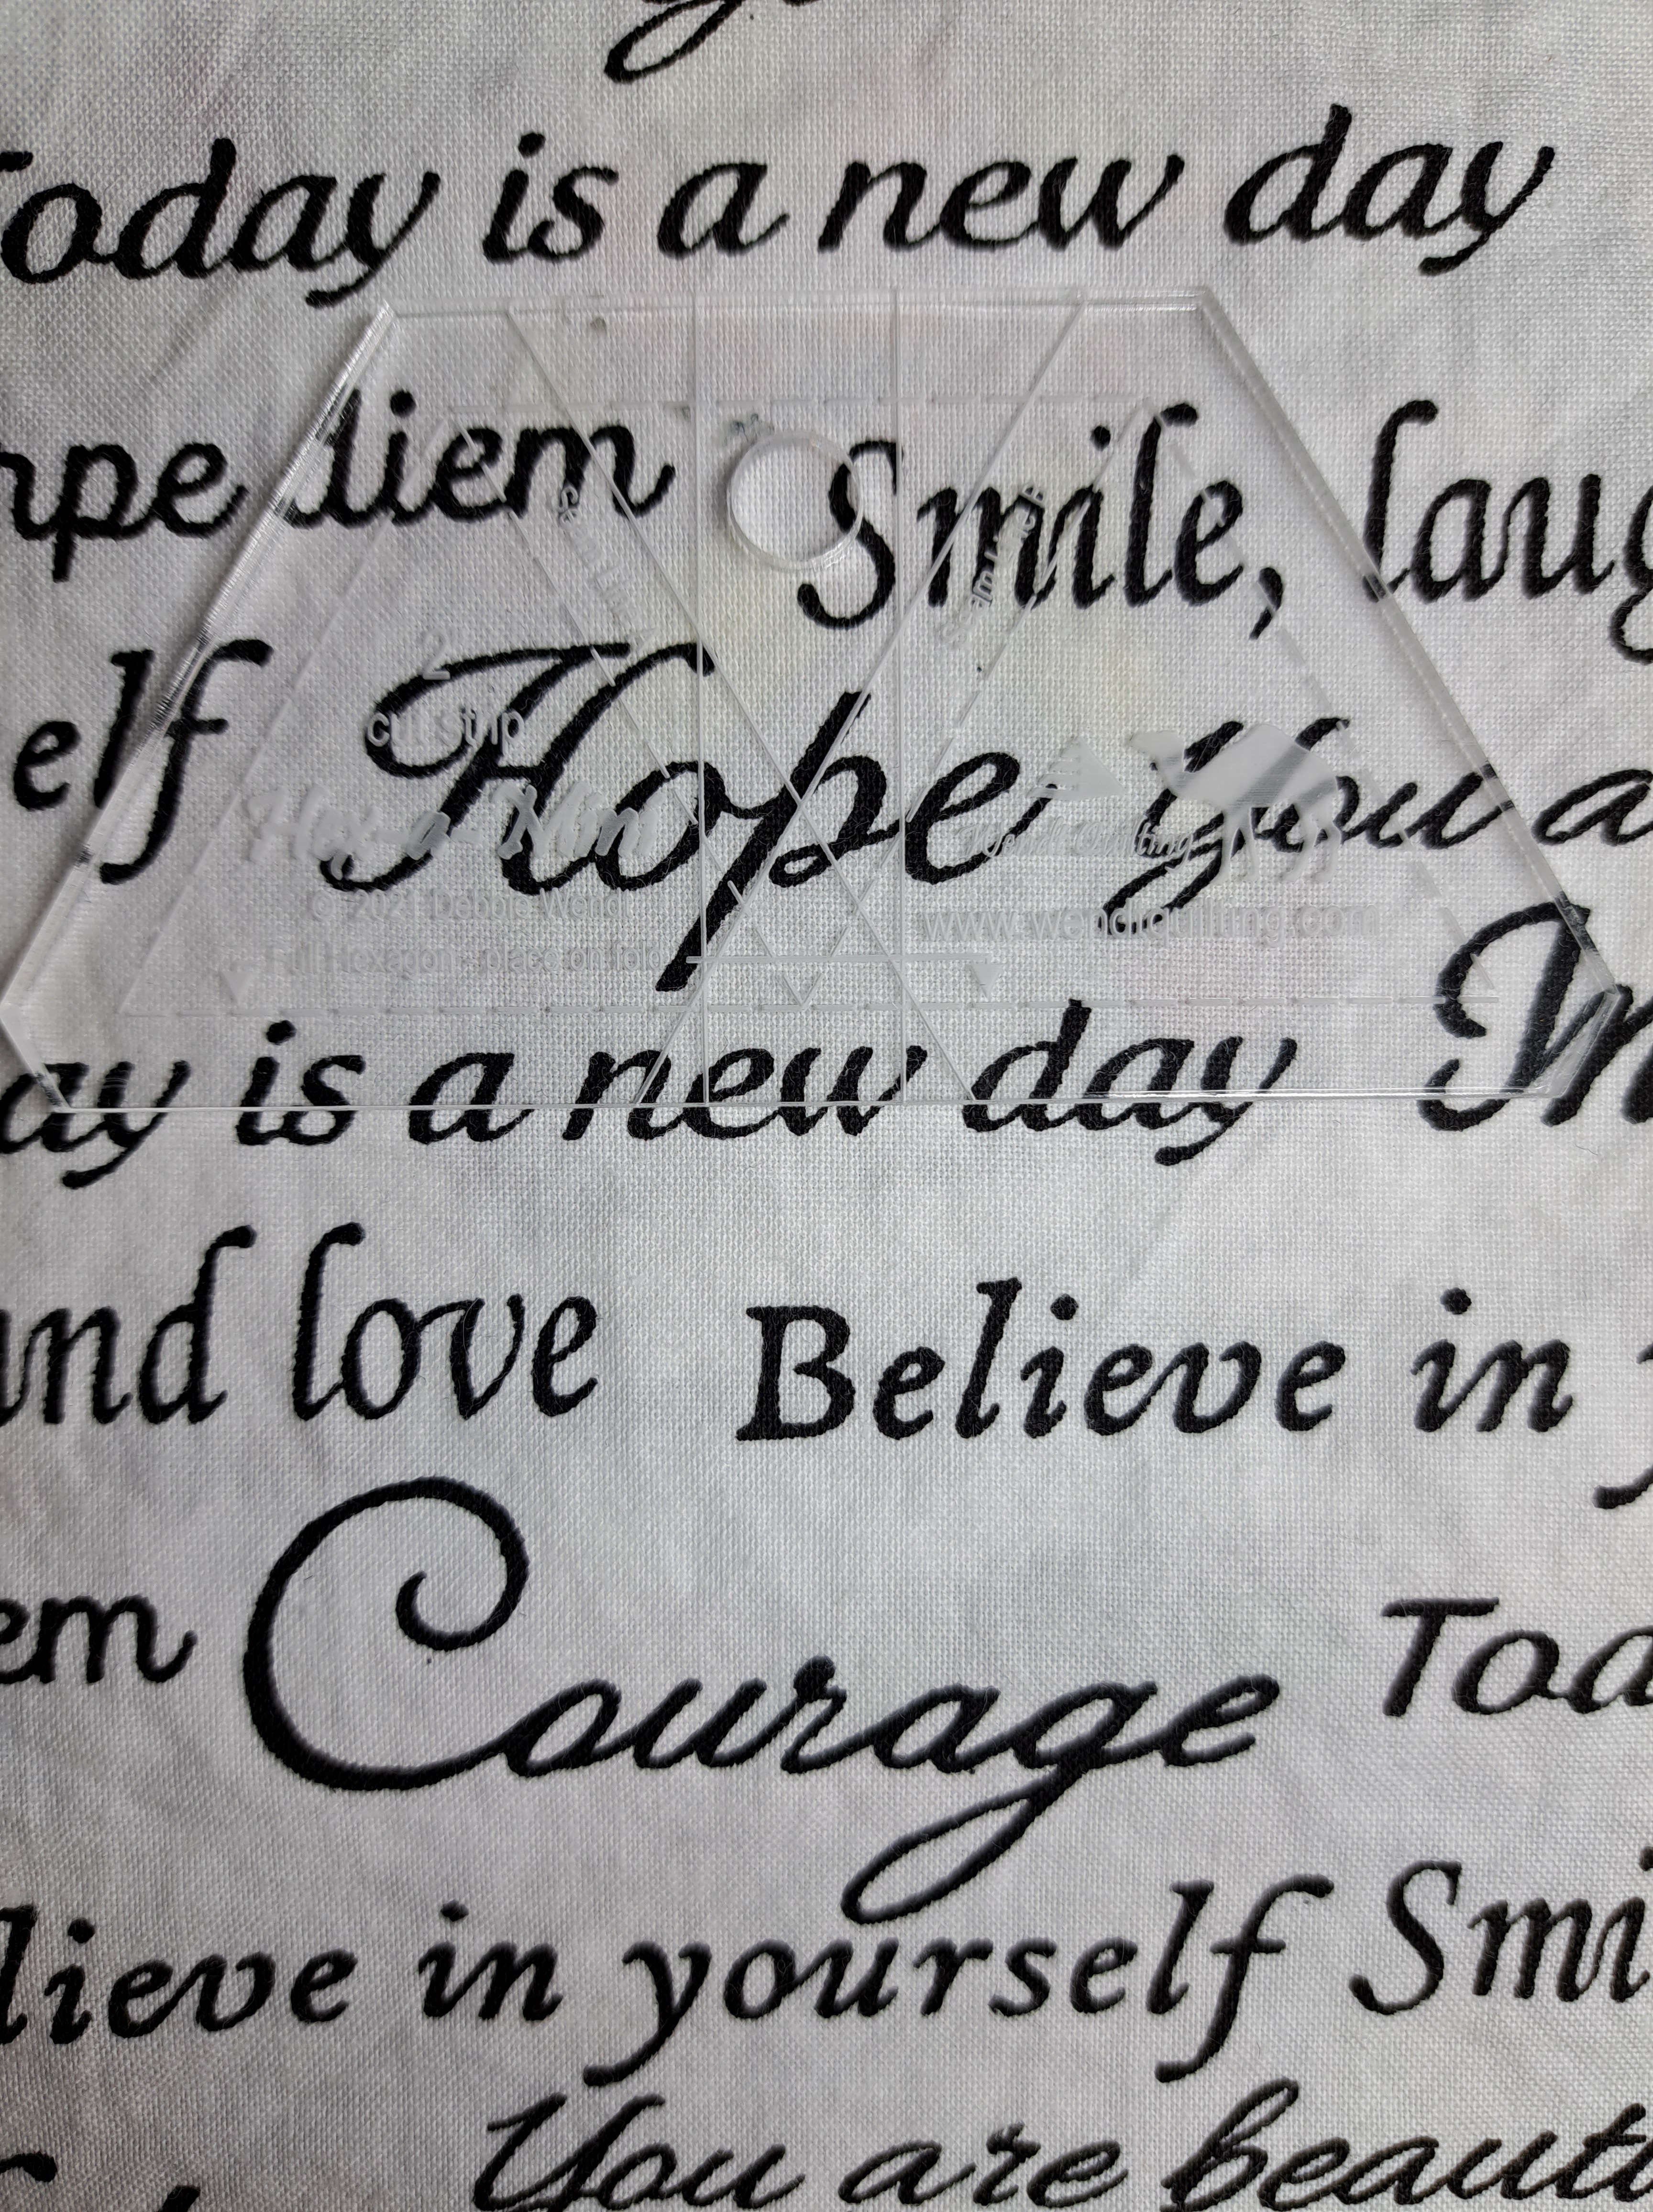 Today is a new day
rpe diem Smile, laug
Seam Line
Seam Line
elf Hope You a
2"
cut strip
Hex-a-Mini
Wendt Quilting
© 202 Debbie Wendt
www.wendtquilting.com
Full Hexagon - place on fold
ay is a new day
and love Believe in
em Courage Toa
lieve in yourself Smi
You are beaut